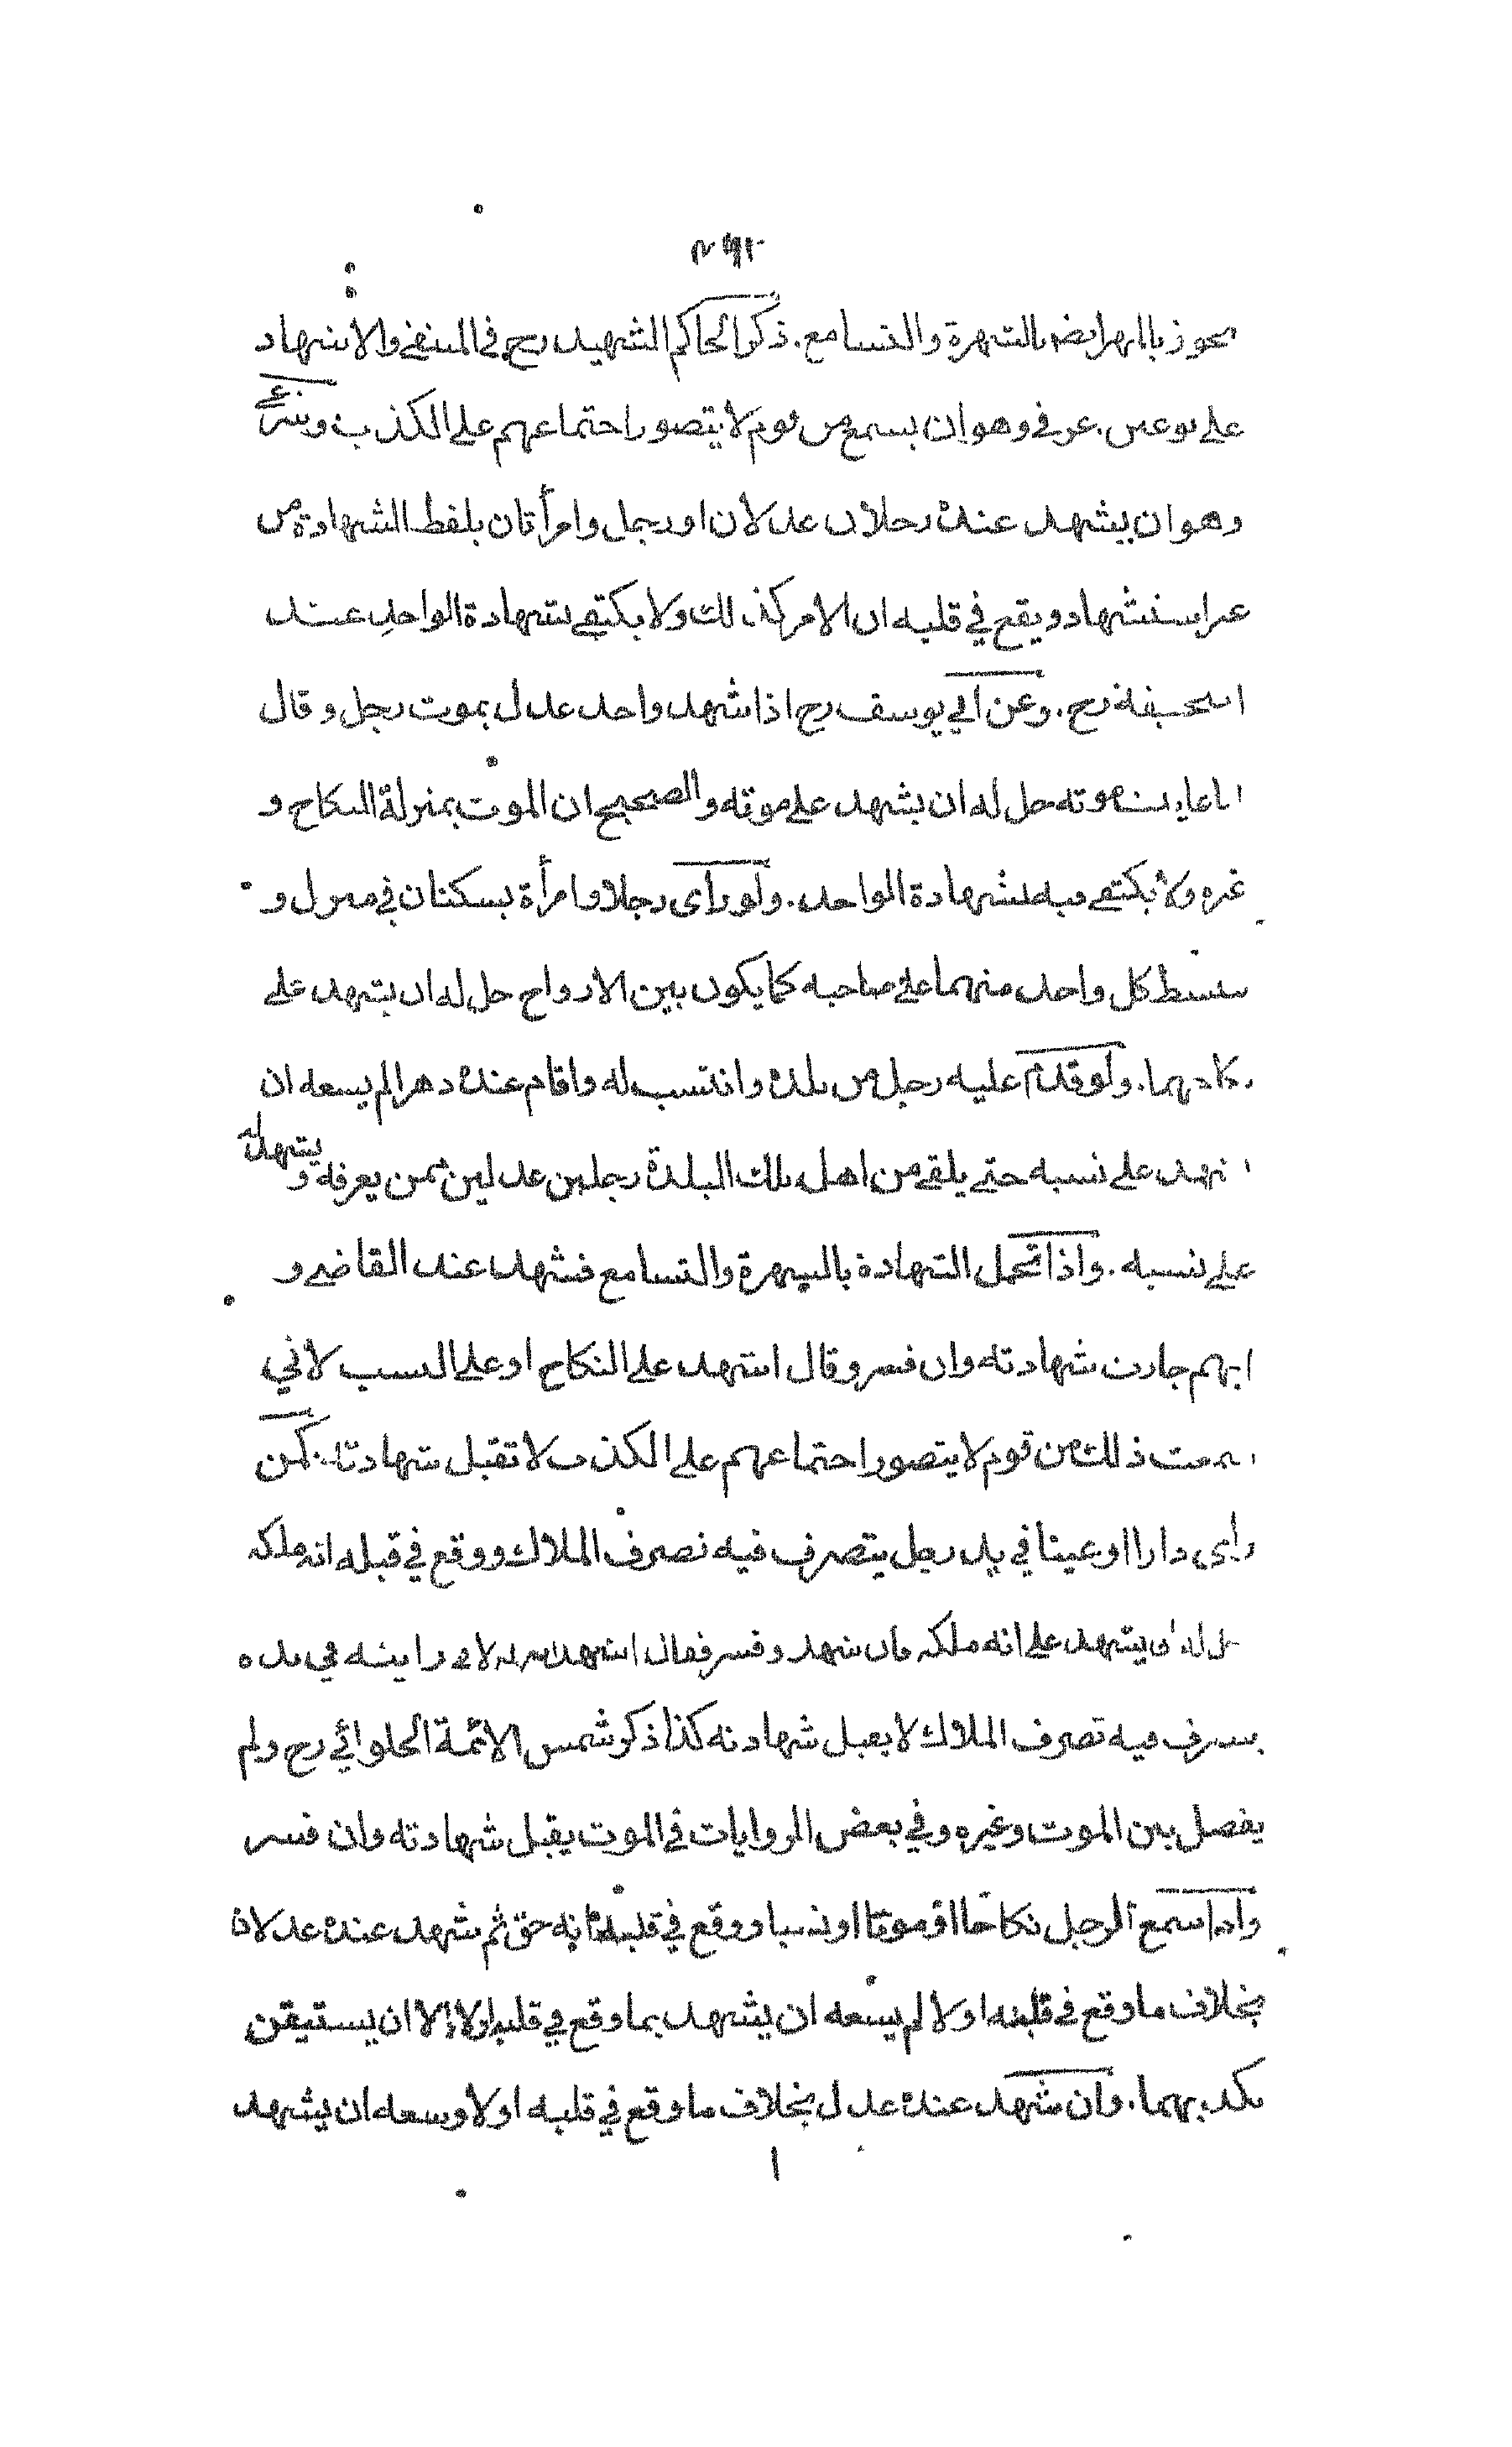 يجوز بالمهر ايضا بالشهرة والتسامع. ذكر الحاكم الشهيد رح في المنتقى والاشهاد
على نوعين. عرفي وهو ان يسمع من قوم لا يتصور اجتماعهم على الكذب وشرعي
وهو ان يشهد عنده رجلان عدلان او رجل وامرأتان بلفظ الشهادة من
غير استشهاد ويقع في قلبه ان الامر كذلك ولا يكتفى بشهادة الواحد عند
ابي حنيفة رح. وعن ابي يوسف رح اذا شهد واحد عدل بموت رجل وقال
انا عاينت موته حل له ان يشهد على موته والصحيح ان الموت بمنزلة النكاح و
غيره ولا يكتفى فيه بشهادة الواحد. ولو رأى رجلا وامرأة يسكنان في منزل و
ينبسط كل واحد منهما على صاحبه كما يكون بين الازواج حل له ان يشهد على
نكاحهما. ولو قدم عليه رجل من بلدة وانتسب له واقام عنده دهرا لم يسعه ان
يشهد على نسبه حتى يلقى من اهل تلك البلدة رجلين عدلين ممن يعرفه و يشهد له
على نسبه. واذا تحمل الشهادة بالشهرة والتسامع فشهد عند القاضي و
ابهم جازت شهادته وان فسر وقال اشهد على النكاح او على النسب لاني
سمعت ذلك من قوم لا يتصور اجتماعهم على الكذب لا تقبل شهادته. كمن
رأى دارا او عينا في يد رجل يتصرف فيه تصرف الملاك ووقع في قبله انه ملكه
حل له ان يشهد على انه ملكه فان شهد وفسر فقال اشهد لاني رايته في يده
يتصرف فيه تصرف الملاك لا يقبل شهادته كذا ذكر شمس الائمة الحلوائي رح ولم
يفصل بين الموت وغيره وفي بعض الروايات في الموت يقبل شهادته وان فسر
واذا سمع الرجل نكاحا او موتا او نسبا ووقع في قلبه انه حق ثم شهد عنده عدلان
بخلاف ما وقع في قلبه اولا لم يسعه ان يشهد بما وقع في قلبه اولا الا ان يستيقن
بكذبهما. وان شهد عنده عدل بخلاف ما وقع في قلبه اولا وسعه ان يشهد